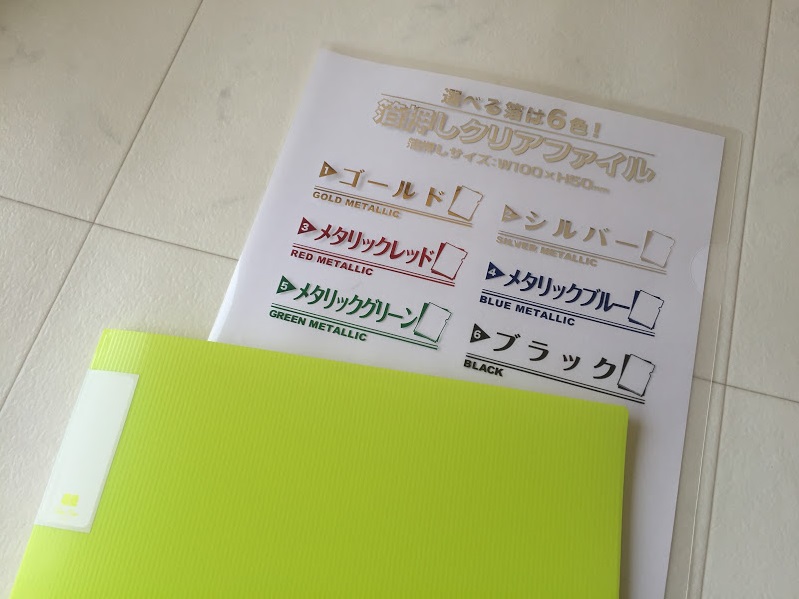 選べる箔は6色!
箔押しクリアファイル
箔押しサイズ:W100×H50mm
1 ゴールド
GOLD METALLIC
2 シルバー
SILVER METALLIC
3 メタリックレッド
RED METALLIC
4 メタリックブルー
BLUE METALLIC
5 メタリックグリーン
GREEN METALLIC
6 ブラック
BLACK